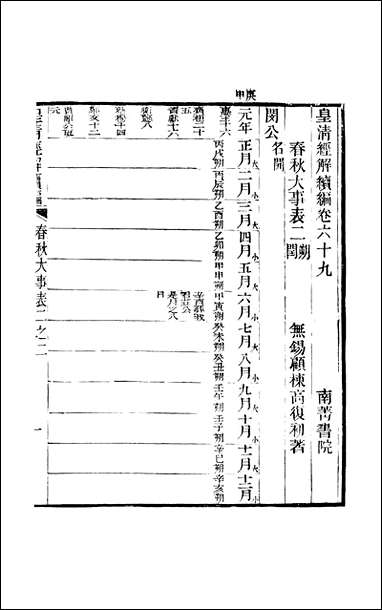 庚申
皇清經解續編卷六十九 南菁書院
春秋大事表二 朔閏 無錫顧棟高復初著
閔公 名開
元年 正月大 二月小 三月大 四月小 五月大 六月小 七月大 八月小 九月大 十月小 十一月大 十二月小
丙戌朔 丙辰朔 乙酉朔 乙卯朔 甲申朔 甲寅朔 癸未朔 癸丑朔 壬午朔 壬子朔 辛巳朔 辛亥朔
惠王十六
齊桓二十
五
晉獻十六
衛懿八
蔡穆十四
鄭文十二
曹昭公班
元
辛酉葬我
君莊公
是月之八
日
皇清經解續編 春秋大事表二之二 一